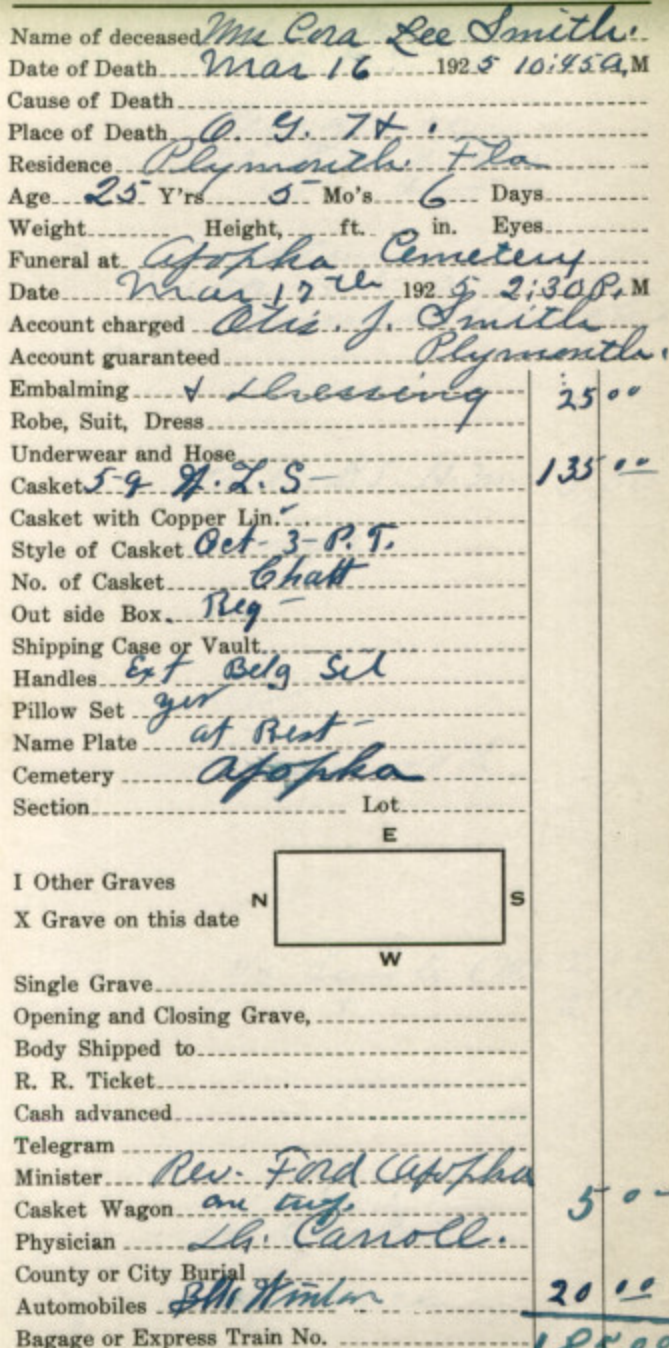 Name of deceased Mrs Cora Lee Smith.
Date of Death Mar 16 1925 10:45 A, M
Cause of Death
Place of Death O. G. H.
Residence Plymouth Fla
Age 25 Y'rs 5 Mo's 6 Days
Weight Height, ft. in. Eyes
Funeral at Apopka Cemetery
Date Mar 17th 1925 2:30 P. M
Account charged Otis. J. Smith
Account guaranteed Plymouth.
Embalming & Dressing 25 00
Robe, Suit, Dress
Underwear and Hose
Casket 5-9 S- 135 00
Casket with Copper Lin.
Style of Casket Oct-3-P.T.
No. of Casket Chatt
Out side Box. Reg-
Shipping Case or Vault
Handles Ext Belg Sil
Pillow Set yes
Name Plate at Rest-
Cemetery Apopka
Section Lot
E
I Other Graves
N S
X Grave on this date
W
Single Grave
Opening and Closing Grave,
Body Shipped to
R. R. Ticket
Cash advanced
Telegram
Minister Rev. Ford Apopka
Casket Wagon our 5 00
Physician Dr. Carroll.
County or City Burial
Automobiles 20 00
Bagage or Express Train No. 185 00